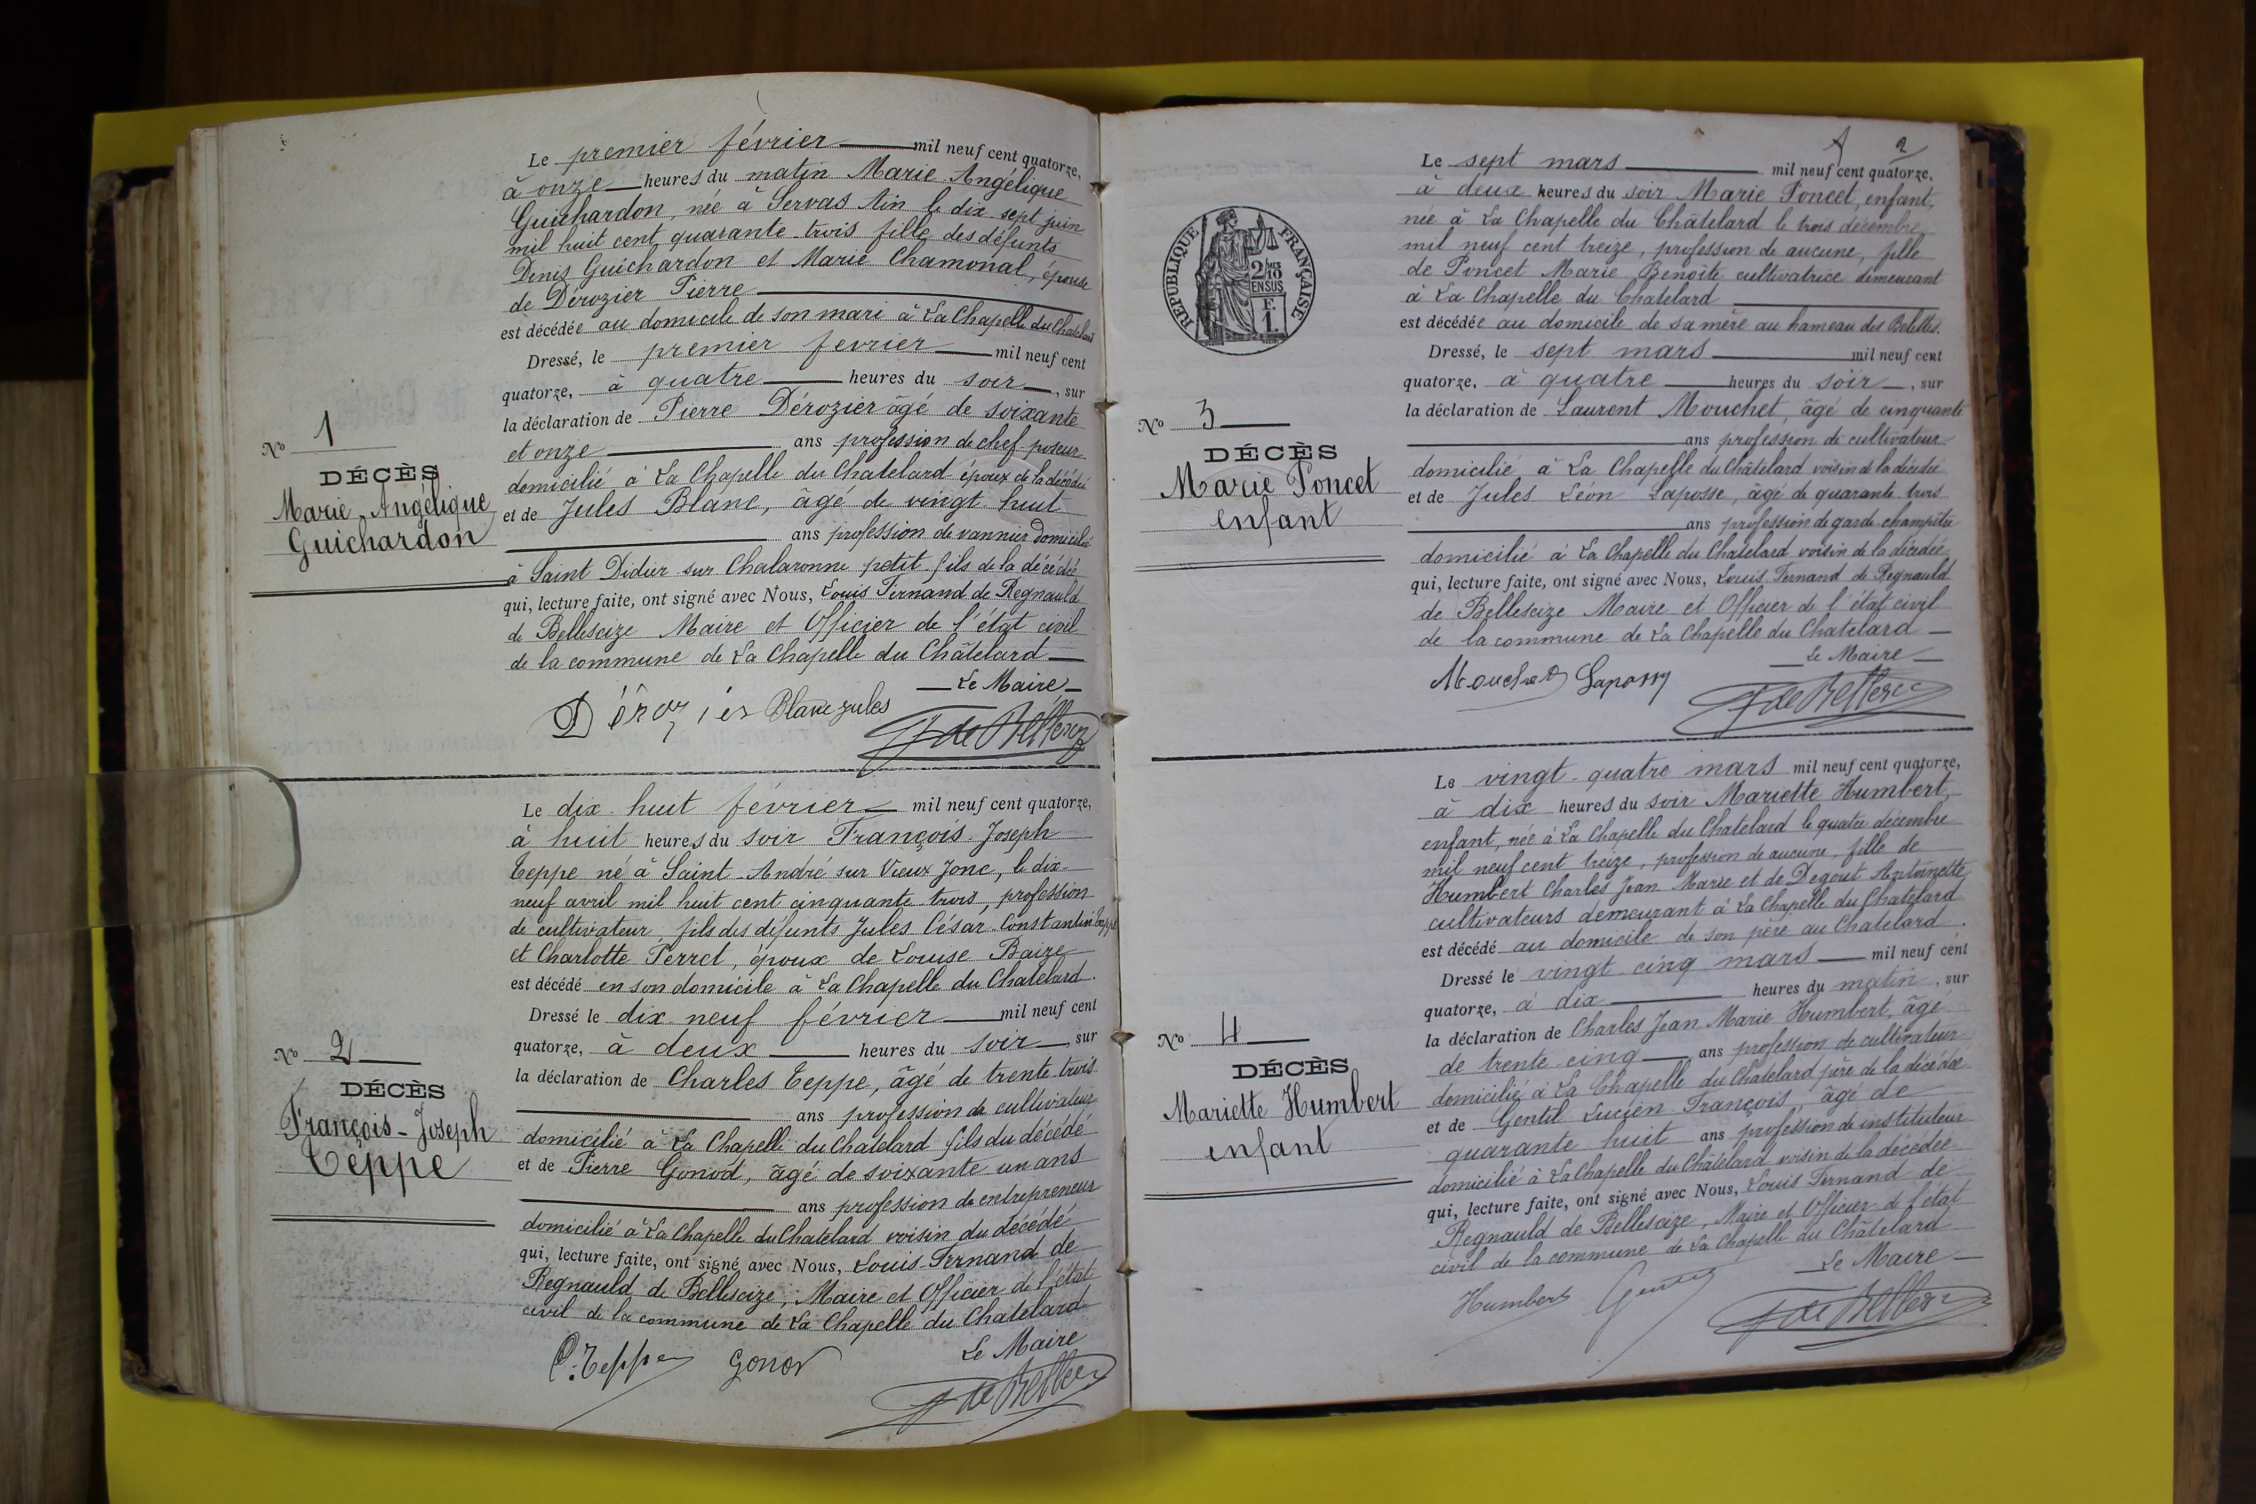 Le premier février mil neuf cent quatorze,
à onze heures du matin Marie Angélique
Guichardon, née à Servas Ain le dix sept juin
mil huit cent quarante trois fille des défunts
Denis Guichardon et Marie Chamonal, épouse
de Dérozier Pierre
est décédée au domicile de son mari à La Chapelle du Chatelard
Dressé, le premier fevrier mil neuf cent
quatorze, à quatre heures du soir, sur
la déclaration de Pierre Dérozier âgé de soixante
et onze ans profession de chef poseur
domicilié à La Chapelle du Chatelard époux de la décédée
et de Jules Blanc, âgé de vingt huit
ans profession de vannier domicilié
à Saint Didier sur Chalaronne petit fils de la décédée
qui, lecture faite, ont signé avec Nous, Louis Fernand de Regnauld
de Bellescize Maire et Officier de l'état civil
de la commune de La Chapelle du Châtelard
Le Maire
Dérozier Blanc Jules
F de Bellescize
No 1
DÉCÈS
Marie Angélique
Guichardon
Le dix huit février mil neuf cent quatorze,
à huit heures du soir François Joseph
Teppe né à Saint André sur Vieux Jonc, le dix
neuf avril mil huit cent cinquante trois, profession
de cultivateur, fils des défunts Jules César Constantin Teppe
et Charlotte Perret, époux de Louise Baize
est décédé en son domicile à La Chapelle du Chatelard.
Dressé le dix neuf février mil neuf cent
quatorze, à deux heures du soir, sur
la déclaration de Charles Teppe, âgé de trente trois
ans profession de cultivateur
domicilié à La Chapelle du Chatelard fils du décédé
et de Pierre Gonod, âgé de soixante un ans
ans profession de entrepreneur
domicilié à La Chapelle du Chatelard voisin du décédé
qui, lecture faite, ont signé avec Nous, Louis Fernand de
Regnauld de Bellescize, Maire et Officier de l'état
civil de la commune de La Chapelle du Chatelard
Le Maire
C. Teppe Gonod
F de Bellescize
No 2
DÉCÈS
François-Joseph
Teppe
2
Le sept mars mil neuf cent quatorze,
à deux heures du soir Marie Poncet, enfant,
née à La Chapelle du Châtelard le trois décembre
mil neuf cent treize, profession de aucune, fille
de Poncet Marie Benoîte cultivatrice demeurant
à La Chapelle du Chatelard
est décédée au domicile de sa mère au hameau des
Dressé, le sept mars mil neuf cent
quatorze, à quatre heures du soir, sur
la déclaration de Laurent Mouchet, âgé de cinquante
ans profession de cultivateur
domicilié à La Chapelle du Châtelard voisin de la décédée
et de Jules Léon Laposse, âgé de quarante trois
ans profession de garde champêtre
domicilié à La Chapelle du Chatelard voisin de la décédée
qui, lecture faite, ont signé avec Nous, Louis Fernand de Regnauld
de Bellescize Maire et Officier de l'état civil
de la commune de La Chapelle du Chatelard
Le Maire
Mouchet Laposse
F de Bellescize
REPUBLIQUE FRANÇAISE
2/10 EN SUS
1 F.
No 3
DÉCÈS
Marie Poncet
enfant
Le vingt-quatre mars mil neuf cent quatorze,
à dix heures du soir Mariette Humbert,
enfant, née à La Chapelle du Chatelard le quatre décembre
mil neuf cent treize, profession de aucune, fille de
Humbert Charles Jean Marie et de Degout Antoinette
cultivateurs demeurant à La Chapelle du Chatelard
est décédé au domicile de son père au Chatelard.
Dressé le vingt cinq mars mil neuf cent
quatorze, à dix heures du matin, sur
la déclaration de Charles Jean Marie Humbert, âgé
de trente cinq ans profession de cultivateur
domicilié à La Chapelle du Chatelard père de la décédée
et de Gentil Lucien François, âgé de
quarante huit ans profession de instituteur
domicilié à La Chapelle du Châtelard voisin de la décédée
qui, lecture faite, ont signé avec Nous, Louis Fernand de
Regnauld de Bellescize, Maire et Officier de l'état
civil de la commune de La Chapelle du Châtelard
Le Maire
Humbert Gentil
F de Bellescize
No 4
DÉCÈS
Mariette Humbert
enfant